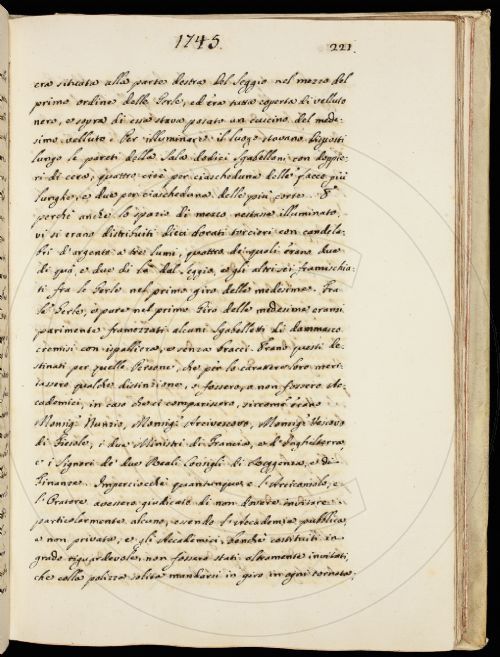 1745.
221.
era situata alla parte destra del Seggio nel mezzo del
primo ordine delle Gerle, ed era tutta coperta di velluto
nero, e sopra di essa stava posato un cuscino del mede-
simo velluto. Per illuminare il luogo stavano disposti
lungo le pareti della Sala dodici Sgabelloni con doppie-
ri di cera, quattro cioè per ciascheduna delle facce più
lunghe, e due per ciascheduna delle più corte. E
perchè anche lo spazio di mezzo restasse illuminato,
vi si erano distribuiti dieci dorati torcieri con candela-
bri d'argento a tre lumi, quattro dei quali erano due
di quà, e due di là dal Seggio, e gli altri sei framischia-
ti fra le Gerle nel primo giro delle medesime. Fra
le Gerle, e pure nel primo Giro delle medesime eransi
parimente framezzati alcuni Sgabelletti di dammasco
cremisi con ispalliera, e senza bracci. Erano questi de-
stinati per quelle Persone, che per lo carattere loro meri-
tassero qualche distinzione, o fossero, o non fossero Ac-
cademici, in caso che ci comparissero, siccome erano
Monsig.r Nunzio, Monsig.r Arcivescovo, Monsig.r Vescovo
di Fiesole, i due Ministri di Francia, e d'Inghilterra,
e i Signori de' due Reali Consigli di Reggenza, e di
Finanze. Imperciocchè quantunque e l'Arciconsolo, e
l'Oratore avessero giudicato di non dovere invitare
particolarmente alcuno, essendo l'Accademia pubblica,
e non privata, e gli Accademici, benchè costituiti in
grado riguardevole, non fossero stati altramente invitati,
che colla polizza solita mandarsi in giro in ogni tornata,